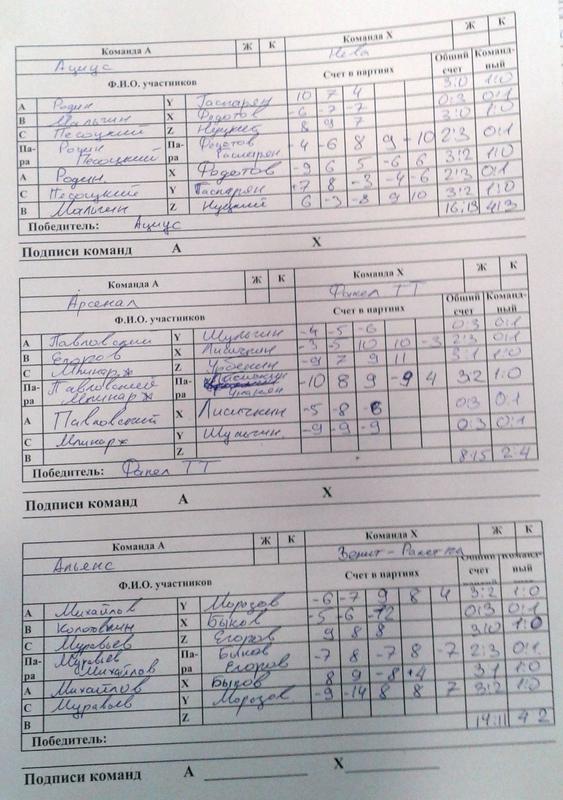 Команда А Ж К Команда Х Ж К
Ациус Нева
Ф.И.О. участников Счет в партиях Общий счет Команд-ный
А Родин Y Гаспарян 10 7 4 3:0 1:0
В Мальгин X Федотов -6 -7 -7 0:3 0:1
С Песоцкий Z Нуцкий 8 9 7 3:0 1:0
Па-ра Родин Песоцкий Па-ра Федотов Гаспарян -4 -6 8 9 -10 2:3 0:1
А Родин X Федотов -9 6 5 -6 6 3:2 1:0
С Песоцкий Y Гаспарян +7 8 -3 -4 -6 2:3 0:1
В Мальгин Z Нуцкий 6 -3 -8 9 10 3:2 1:0
Победитель: Ациус 16:13 4:3
Подписи команд А Х
Команда А Ж К Команда Х Ж К
Арсенал Факел ТТ
Ф.И.О. участников Счет в партиях Общий счет Команд-ный
А Павловский Y Шульгин -4 -5 -6 0:3 0:1
В Егоров X Лисичкин -3 -5 10 10 -3 2:3 0:1
С Мпинарж Z -9 7 9 11 3:1 1:0
Па-ра Павловский Мпинарж Па-ра -10 8 9 -9 4 3:2 1:0
А Павловский X Лисичкин -5 -8 -6 0:3 0:1
С Мпинарж Y Шульгин -9 -9 -9 0:3 0:1
В Z
Победитель: Факел ТТ 8:15 2:4
Подписи команд А Х
Команда А Ж К Команда Х Ж К
Альянс Зенит-Ракетка
Ф.И.О. участников Счет в партиях Общий счет Команд-ный
А Михайлов Y Морозов -6 -7 9 8 4 3:2 1:0
В Колотвкин X Быков -5 -6 -12 0:3 0:1
С Муравьев Z Егоров 9 8 8 3:0 1:0
Па-ра Муравьев Михайлов Па-ра Быков Егоров -7 8 -7 8 -7 2:3 0:1
А Михайлов X Быков 8 9 -8 +4 3:1 1:0
С Муравьев Y Морозов -9 -14 8 8 7 3:2 1:0
В Z 14:11 4 2
Победитель:
Подписи команд А Х